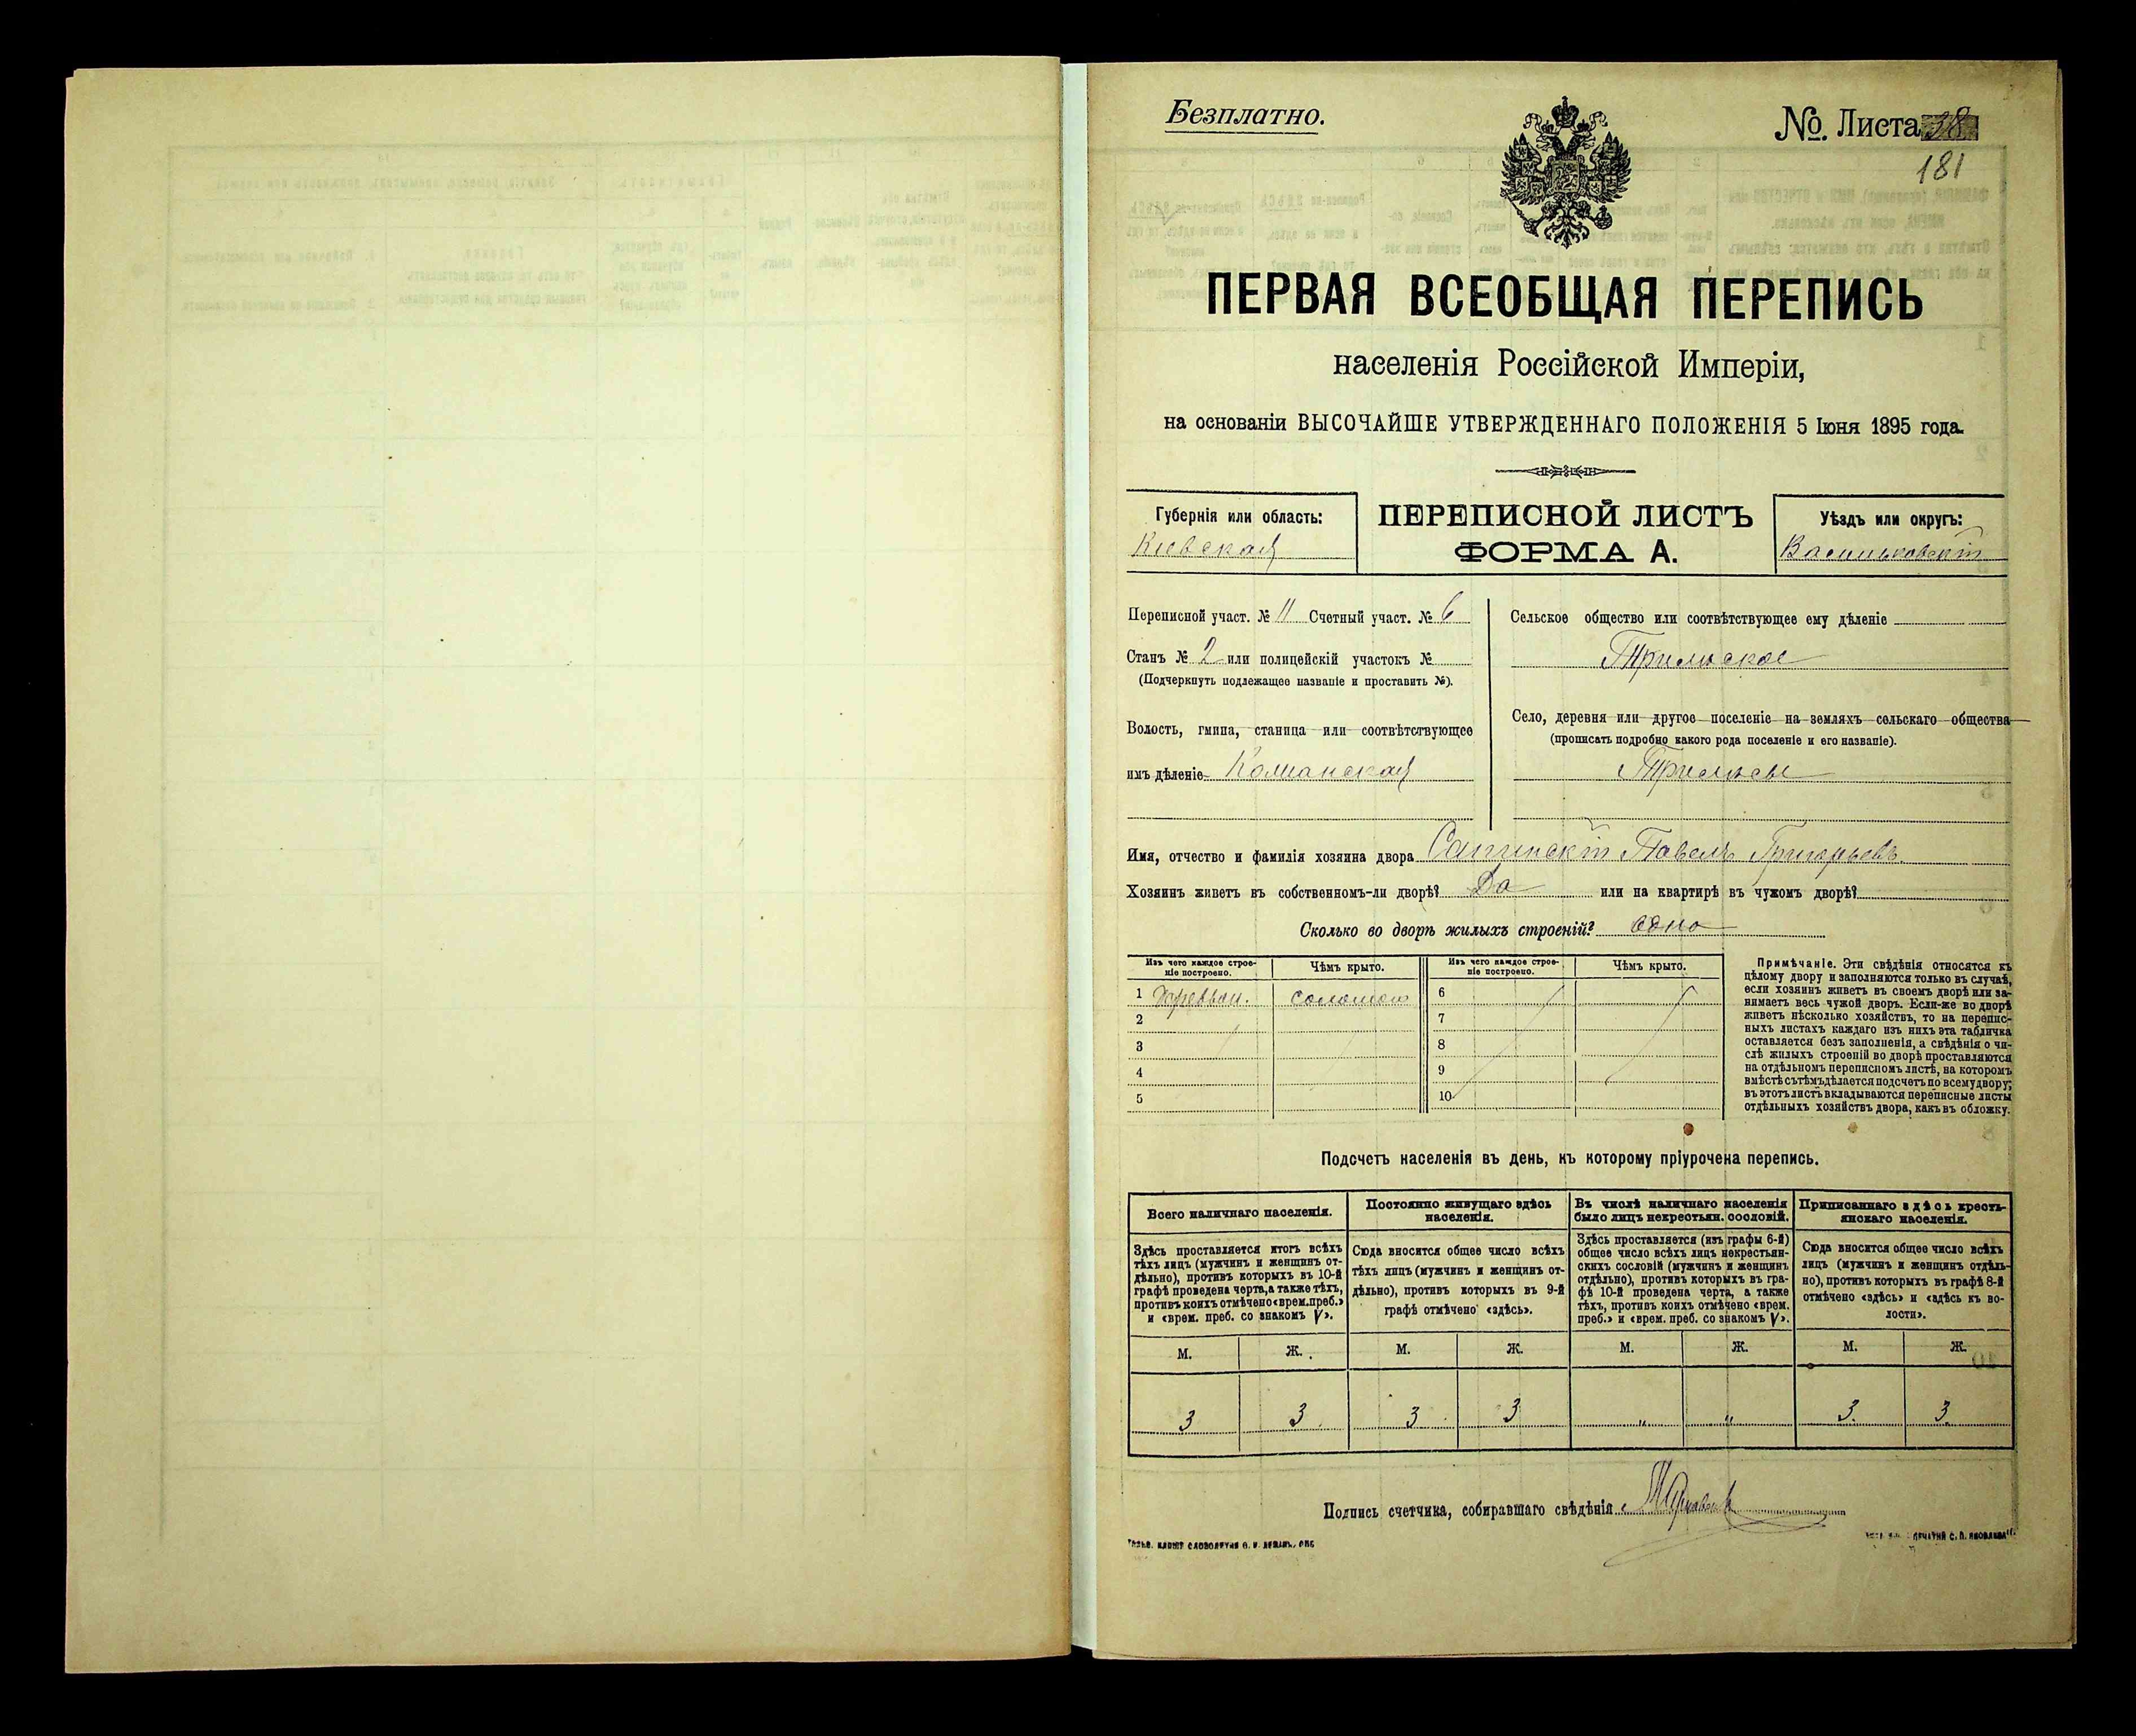 Безплатно.
№. Листа 38
181
ПЕРВАЯ ВСЕОБЩАЯ ПЕРЕПИСЬ
населенія Россійской Имперіи,
на основаніи ВЫСОЧАЙШЕ УТВЕРЖДЕННАГО ПОЛОЖЕНІЯ 5 Іюня 1895 года.
Губернія или область:
Кіевская
ПЕРЕПИСНОЙ ЛИСТЪ
ФОРМА А.
Уѣздъ или округъ:
Васильковскій
Переписной участ. № 11 Счетный участ. № 6
Станъ № 2 или полицейскій участокъ №
(Подчеркнуть подлежащее названіе и проставить №).
Волость, гмина, станица или соотвѣтствующее
имъ дѣленіе
Сельское общество или соотвѣтствующее ему дѣленіе
Трилѣское
Село, деревня или другое поселеніе на земляхъ сельскаго общества
(прописать подробно какого рода поселеніе и его названіе).
Трилѣсы
Имя, отчество и фамилія хозяина двора Павелъ Григорьевъ
Хозяинъ живетъ въ собственномъ-ли дворѣ? Да или на квартирѣ въ чужомъ дворѣ?
Сколько во дворѣ жилыхъ строеній? одно
Изъ чего каждое строе-
ніе построено.
Чѣмъ крыто.
Изъ чего каждое строе-
ніе построено.
Чѣмъ крыто.
1 соломою 6
2 7
3 8
4 9
5 10
Примѣчаніе. Эти свѣдѣнія относятся къ
цѣлому двору и заполняются только въ случаѣ,
если хозяинъ живетъ въ своемъ дворѣ или за-
нимаетъ весь чужой дворъ. Если-же во дворѣ
живетъ нѣсколько хозяйствъ, то на перепис-
ныхъ листахъ каждаго изъ нихъ эта табличка
оставляется безъ заполненія, а свѣдѣнія о чи-
слѣ жилыхъ строеній во дворѣ проставляются
на отдѣльномъ переписномъ листѣ, на которомъ
вмѣстѣ съ тѣмъ дѣлается подсчетъ по всему двору;
въ этотъ листъ вкладываются переписные листы
отдѣльныхъ хозяйствъ двора, какъ въ обложку.
Подсчетъ населенія въ день, къ которому пріурочена перепись.
Всего наличнаго населенія.
Здѣсь проставляется итогъ всѣхъ
тѣхъ лицъ (мужчинъ и женщинъ от-
дѣльно), противъ которыхъ въ 10-й
графѣ проведена черта, а также тѣхъ,
противъ коихъ отмѣчено «врем. преб.»
и «врем. преб. со знакомъ V».
Постоянно живущаго здѣсь
населенія.
Сюда вносится общее число всѣхъ
тѣхъ лицъ (мужчинъ и женщинъ от-
дѣльно), противъ которыхъ въ 9-й
графѣ отмѣчено «здѣсь».
Въ числѣ наличнаго населенія
было лицъ некрестьян. сословій.
Здѣсь проставляется (изъ графы 6-й)
общее число всѣхъ лицъ некрестьян-
скихъ сословій (мужчинъ и женщинъ
отдѣльно), противъ которыхъ въ гра-
фѣ 10-й проведена черта, а также
тѣхъ, противъ коихъ отмѣчено «врем.
преб.» и «врем. преб. со знакомъ V».
Приписаннаго здѣсь кресть-
янскаго населенія.
Сюда вносится общее число всѣхъ
лицъ (мужчинъ и женщинъ отдѣль-
но), противъ которыхъ въ графѣ 8-й
отмѣчено «здѣсь» и «здѣсь къ во-
лости».
М. Ж. М. Ж. М. Ж. М. Ж.
3 3 3 3 " " 3. 3.
Подпись счетчика, собиравшаго свѣдѣнія